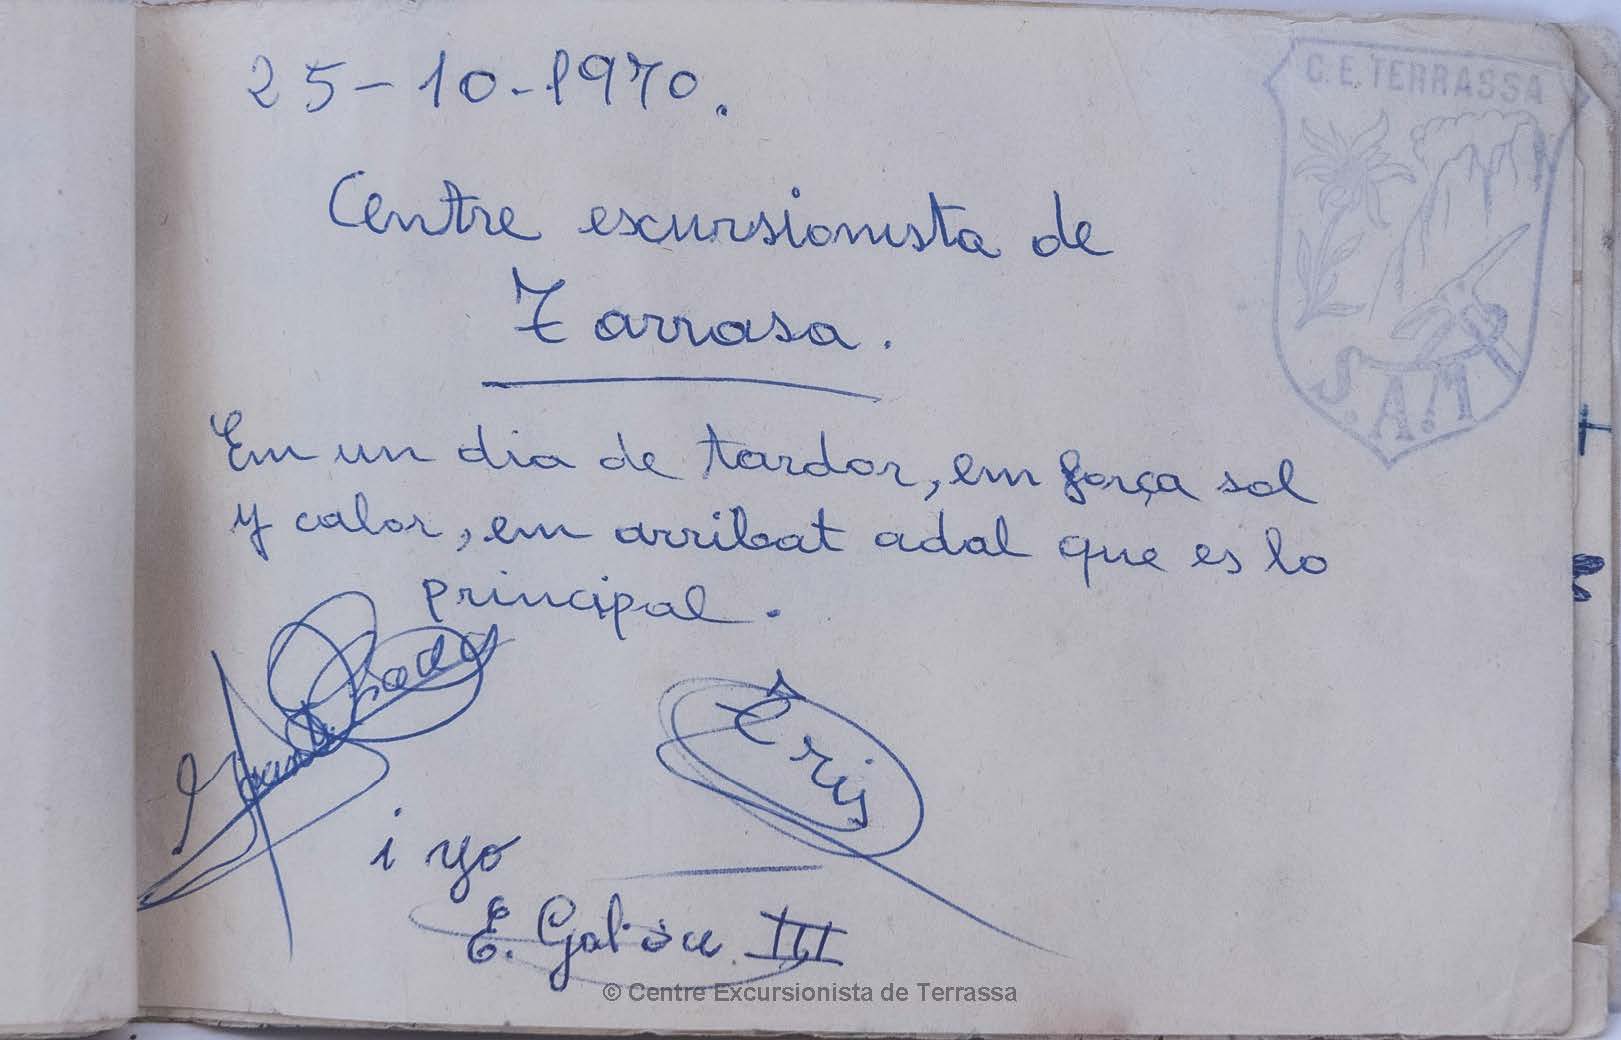 25-10-1970.
C. E. TERRASSA
Centre excursionista de
Tarrasa.
S.A.M
Em un dia de tardor, em força sol
y calor, em arribat adal que es lo
principal.
Eris
i yo
E. III
© Centre Excursionista de Terrassa